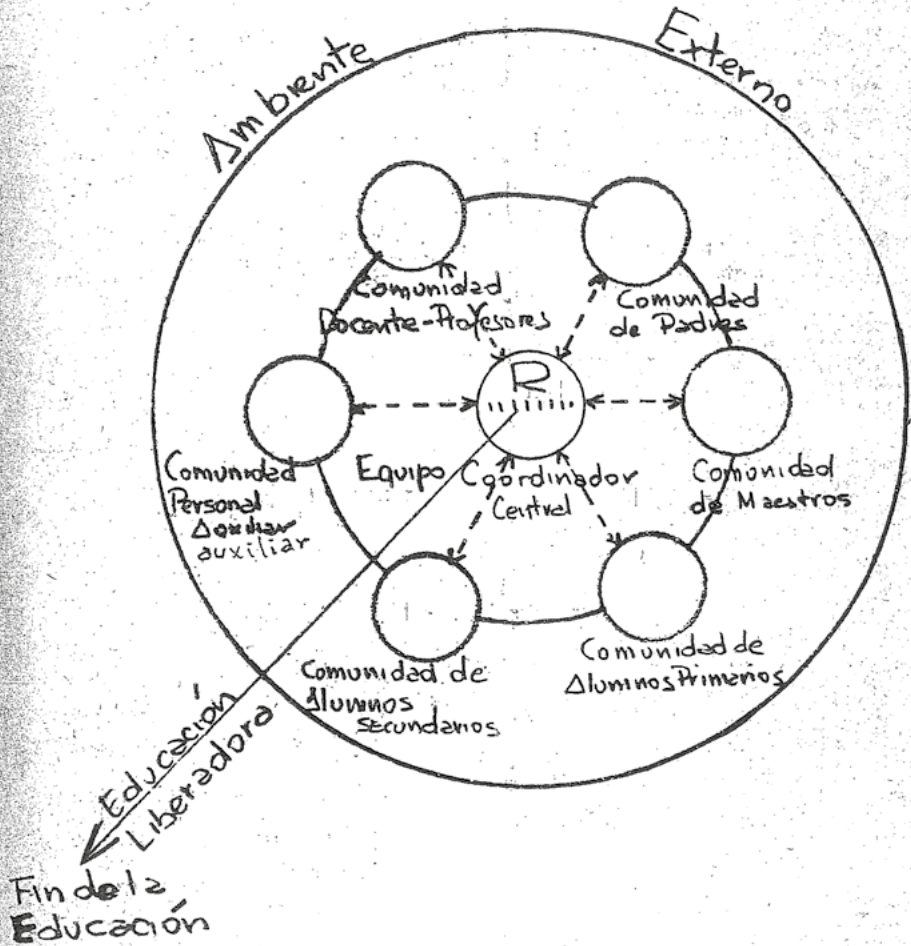 Ambiente
Externo
Comunidad
Docente-Profesores
Comunidad
de Padres
R
Comunidad
Personal
Auxiliar
auxiliar
Equipo Coordinador
Central
Comunidad
de Maestros
Comunidad de
Alumnos
Secundarios
Comunidad de
Alumnos Primarios
Educación
Liberadora
Fin de la
Educación